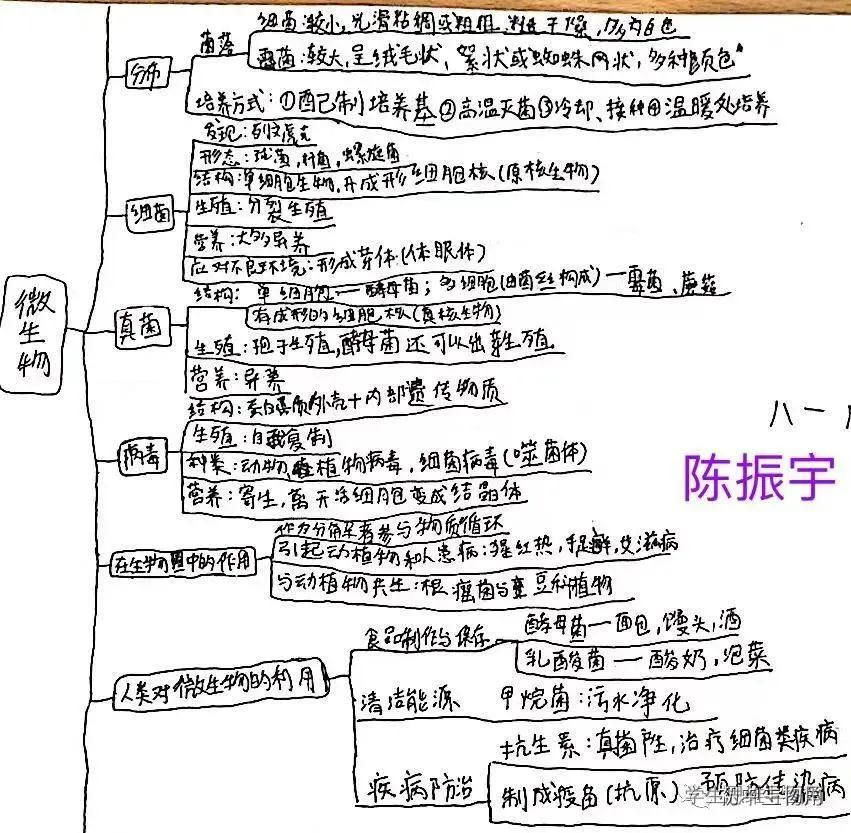 细菌:较小,光滑粘稠或粗粗糙干燥,多为白色
菌落
霉菌:较大,呈绒毛状,絮状或蜘蛛网状,多种颜色
分布
培养方式:①配制培养基②高温灭菌③冷却、接种④温暖处培养
发现:列文虎克
形态:球菌,杆菌,螺旋菌
结构:单细胞生物,无成形细胞核(原核生物)
细菌
生殖:分裂生殖
营养:大多异养
应对不良环境:形成芽体(休眠体)
微生物
结构:单细胞—酵母菌;多细胞(由菌丝构成)—霉菌、蘑菇
真菌
有成形的细胞核(真核生物)
生殖:孢子生殖,酵母菌还可以出芽生殖
营养:异养
结构:蛋白质外壳+内部遗传物质
八一
生殖:自我复制
病毒
种类:动物,植物病毒,细菌病毒(噬菌体)
陈振宇
营养:寄生,离开活细胞变成结晶体
作为分解者参与物质循环
在生物圈中的作用
引起动植物和人患病:猩红热,手足癣,艾滋病
与动植物共生:根瘤菌与豆科植物
食品制作与保存
酵母菌—面包,馒头,酒
乳酸菌—酸奶,泡菜
人类对微生物的利用
清洁能源 甲烷菌:污水净化
抗生素:真菌产生,治疗细菌类疾病
疾病防治
制成疫苗(抗原) 预防传染病